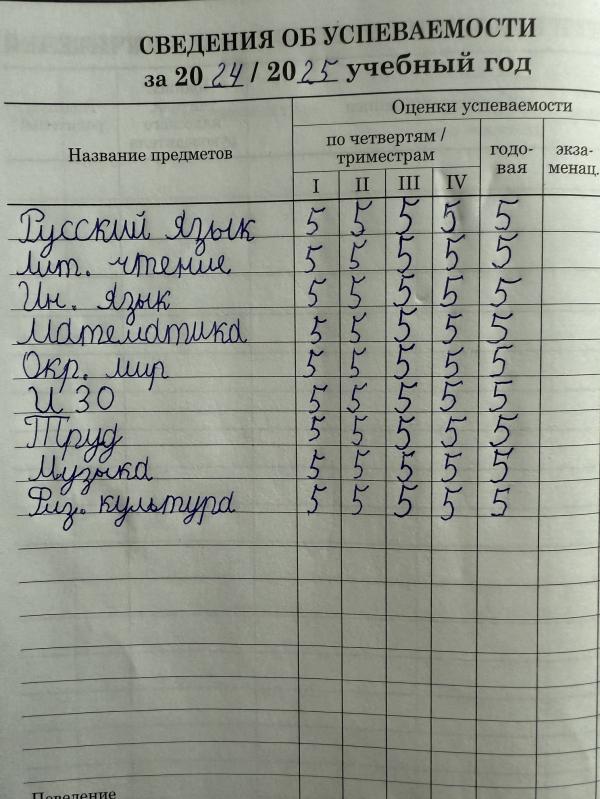 СВЕДЕНИЯ ОБ УСПЕВАЕМОСТИ
за 2024 / 2025 учебный год
Название предметов
Оценки успеваемости
по четвертям /
триместрам
годо-
вая
экза-
менац.
I II III IV
Русский язык 5 5 5 5 5
Лит. чтение 5 5 5 5 5
Ин. язык 5 5 5 5 5
Математика 5 5 5 5 5
Окр. мир 5 5 5 5 5
ИЗО 5 5 5 5 5
Труд 5 5 5 5 5
Музыка 5 5 5 5 5
Физ. культура 5 5 5 5 5
Поведение